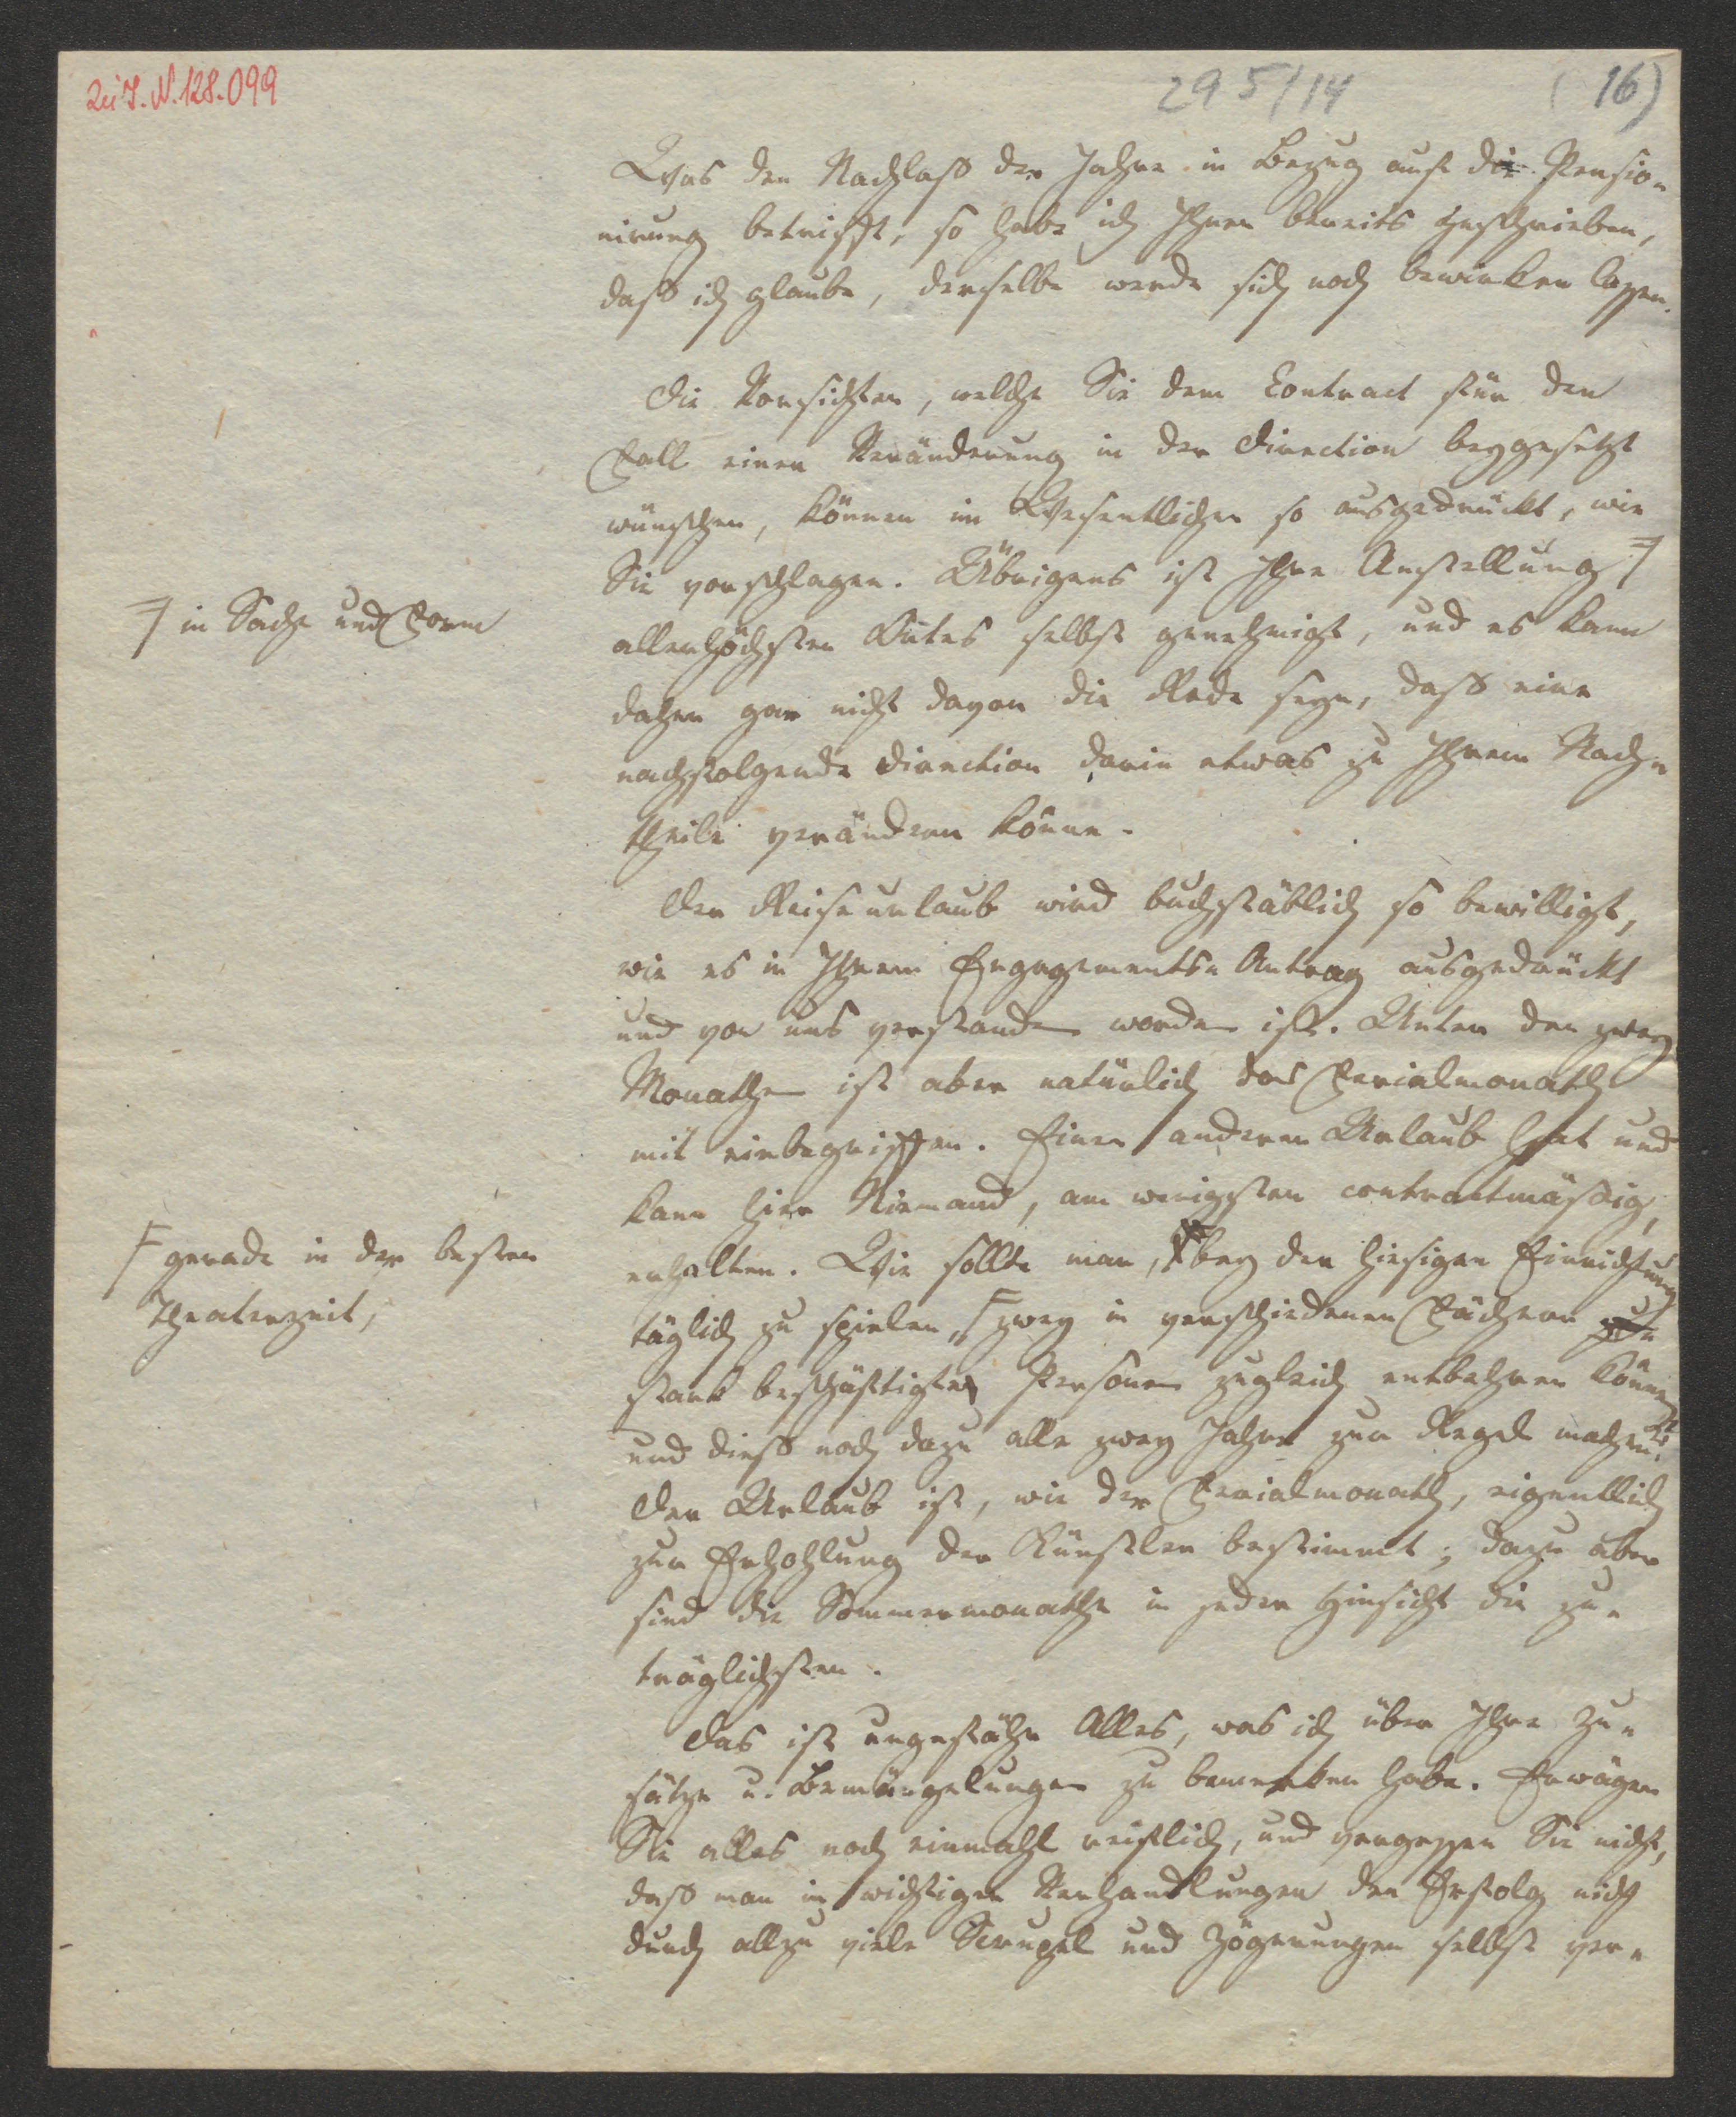 Zu I. N. 128.099
295/14
(16)
Was den Nachlaß der Jahre in Bezug auf die Pensio-
nirung betrifft, so habe ich Ihnen bereits geschrieben,
daß ich glaube, derselbe werde sich noch bewirken lassen.
Die Vorsichten, welche Sie dem Contract für den
Fall einer Veränderung in der Direction beygesetzt
wünschen, können im Wesentlichen so ausgedrückt, wie
Sie vorschlagen. Übrigens ist Ihre Anstellung
in Sache und Form
allerhöchsten Ortes selbst genehmigt, und es kann
daher gar nicht davon die Rede seyn, daß eine
nachfolgende Direction darin etwas zu Ihrem Nach-
theile verändern könne.
Der Reiseurlaub wird buchstäblich so bewilligt,
wie es in Ihrem Engagements-Antrag ausgedrückt
und von uns verstanden worden ist. Unter den zwey
Monathen ist aber natürlich das Ferialmonath
mit einbegriffen. Einen anderen Urlaub hat und
kann hier Niemand, am wenigsten contractmäßig,
erhalten. Wie sollte man, bey der hiesigen Einrichtung
täglich zu spielen, zwey in verschiedenen Fächern
gerade in der besten
Theaterzeit,
stark beschäftigte Personen zugleich entbehren können
und dieß noch dazu alle zwey Jahre zur Regel machen?
Der Urlaub ist, wie der Ferialmonath, eigentlich
zur Erhohlung der Künstler bestimmt; dazu aber
sind die Sommermonathe in jeder Hinsicht die zu-
träglichsten.
Das ist ungefähr Alles, was ich über Ihre Zu-
sätze u. Bemängelungen zu bemerken habe. Erwägen
Sie alles noch einmahl reiflich, und vergessen Sie nicht,
daß man in wichtigen Verhandlungen den Erfolg nicht
durch allzu viele Scrupel und Zögerungen selbst ver-